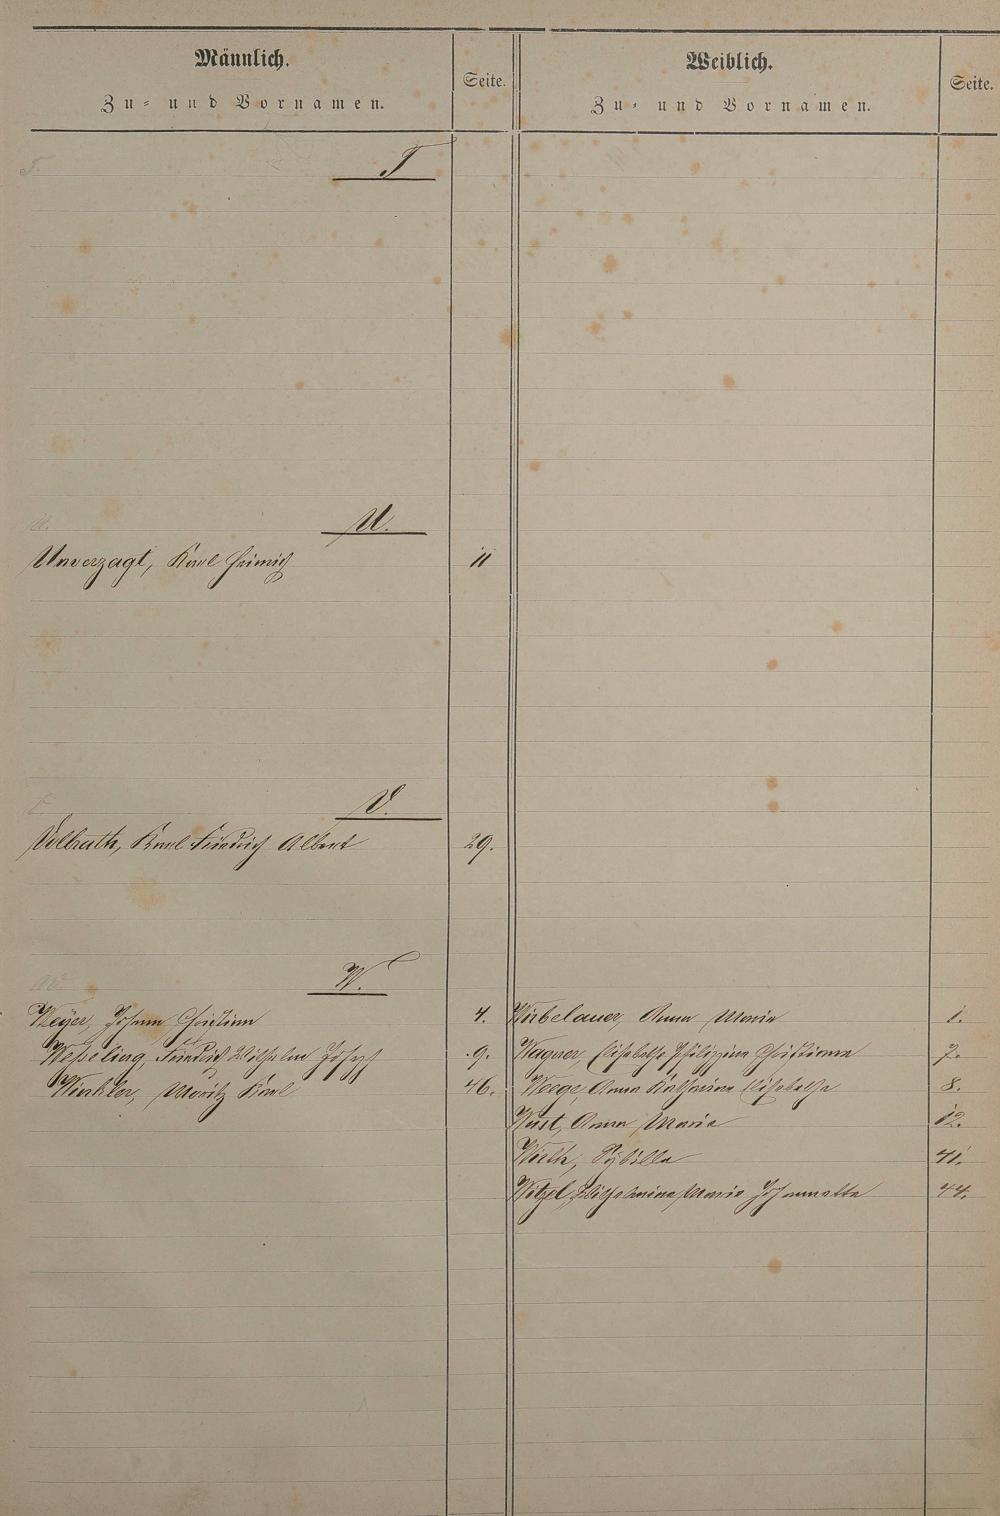 Männlich.
Zu- und Vornamen.
Seite.
Weiblich.
Zu- und Vornamen.
Seite.
T
U.
Unverzagt, Karl Heinrich 11
V.
Vollrath, Karl Friedrich Albert 29.
W.
Weyer, Johann Christian 4.
Weßeling, Friedrich Wilhelm Joseph 9.
Winkler, Moritz Karl 46.
Wirbelauer, Anna Maria 1.
Wagner, Elisabethe Philippine Christiane 7.
Weege, Anna Katharina Elisabetha 8.
Wüst, Anna Maria 12.
Wirth, Sybilla 41.
Witzel, Wilhelmine Marie Johannette 44.